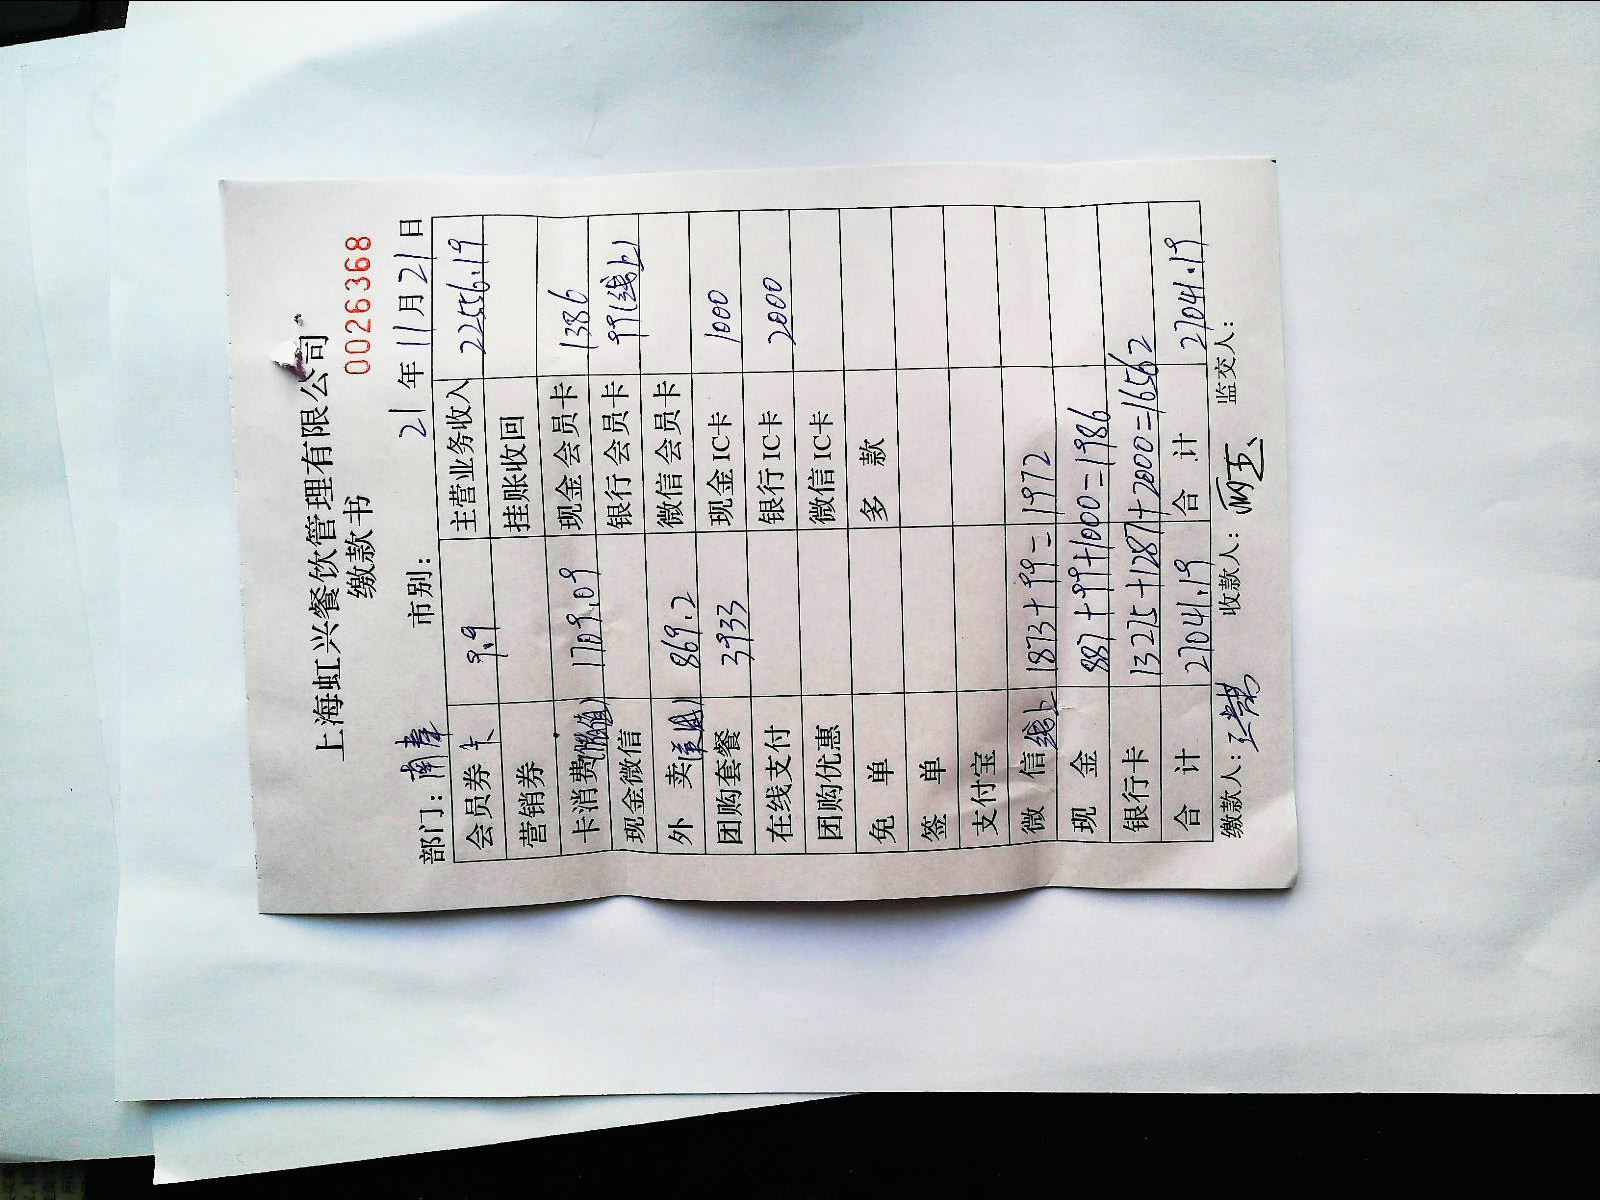 上海虹兴餐饮管理有限公司
缴款书
0026368
部门: 市别: 21年11月21日
会员券 卡 9.9 主营业务收入 22556.19
营销券 挂账收回
卡消费(储值) 1709.09 现金会员卡 1386
现金微信 银行会员卡 99(线上)
外 卖 869.2 微信会员卡
团购套餐 3933 现金IC卡 1000
在线支付 银行IC卡 2000
团购优惠 微信IC卡
免 单 多 款
签 单
支付宝
微 信 线上 1873+99=1972
现 金 887+99+1000=1986
银行卡 13275+1287+2000=16562
合 计 27041.19 合 计 27041.19
缴款人: 收款人: 监交人: